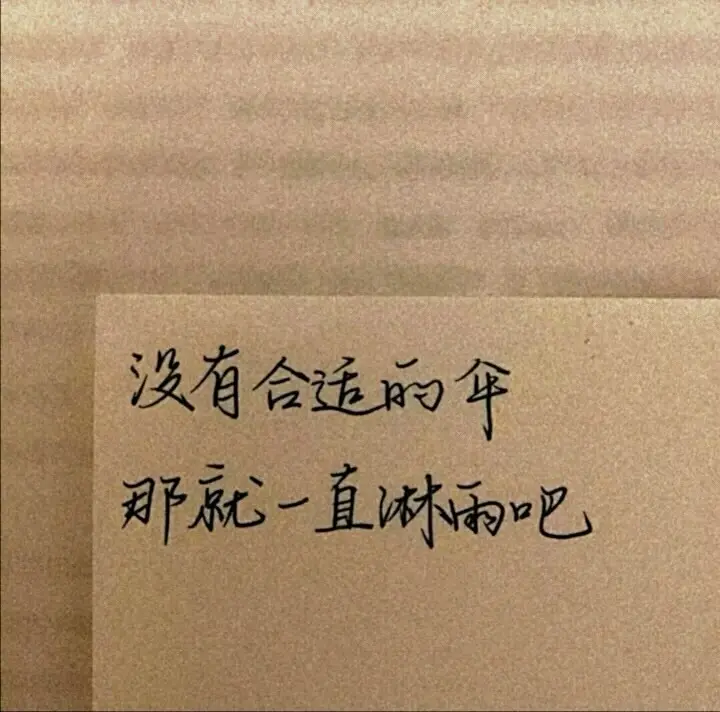 没有合适的伞
那就一直淋雨吧